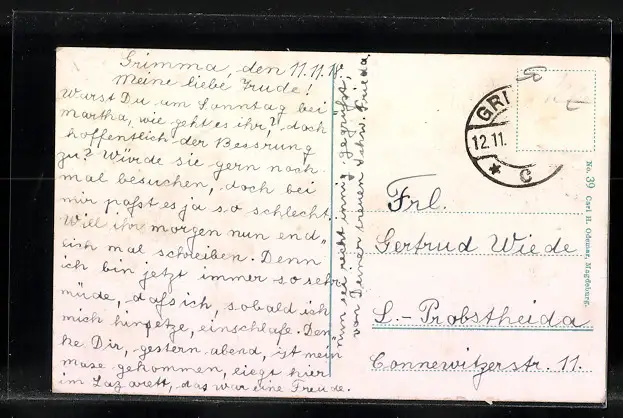 Grimma, den 11.11.18.
Meine liebe Trude!
Warst Du am Sonntag bei
Martha, wie geht es ihr? doch
hoffentlich der Bessrung
zu? Würde sie gern noch
mal besuchen, doch bei
mir paßt es ja so schlecht.
Will ihr morgen nun end„
lich mal schreiben. Denn
ich bin jetzt immer so sehr
müde, daß ich, sobald ich
mich hinsetze, einschlafe. Den
ke Dir, gestern abend, ist mein
gekommen, liegt hier
im Lazarett, das war eine Freude.
nun sei recht innig gegrüßt,
von Deiner treuen Schw. Frieda.
GRI
12.11.
* C
Frl.
Gertrud Wiede
L.-Probstheida
Connewitzerstr. 11.
No. 39 Carl H. Odemar, Magdeburg.